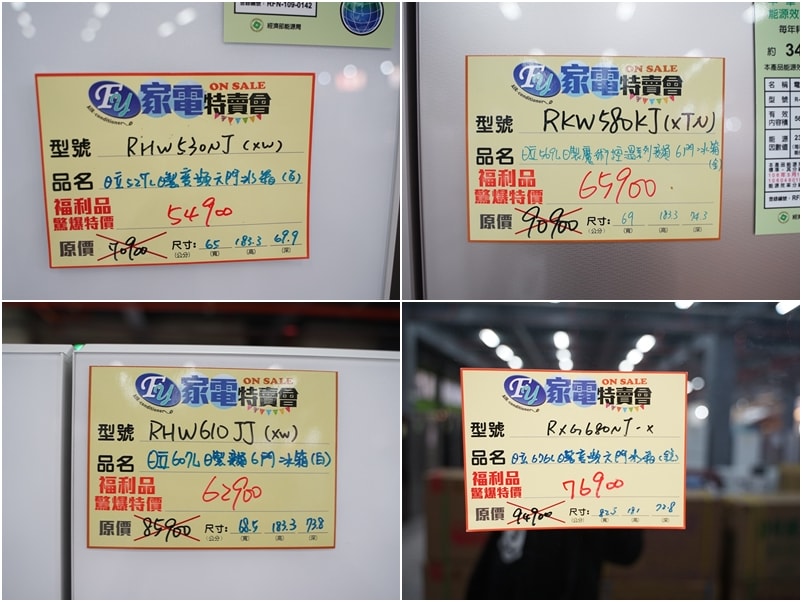 證號編號：RFN-109-0142
經濟部能源局
FU 家電特賣會
ON SALE
Air conditioner
型號 RHW530NJ (XW)
品名 日立527L日製變頻六門冰箱(白)
福利品
驚爆特價 54900
原價 70900 尺寸：65 183.3 69.9
(公分) (寬) (高) (深)
能源效
每年耗
約 34
本產品能源效
FU 家電特賣會
ON SALE
Air conditioner
型號 RKW580KJ(XTN)
品名 日立569L日製魔術控溫系列變頻6門冰箱(金)
福利品
驚爆特價 65900
原價 90900 尺寸：69 183.3 74.3
(公分) (寬) (高) (深)
FU 家電特賣會
ON SALE
Air conditioner
型號 RHW610JJ (XW)
品名 日立607L日製變頻6門冰箱(白)
福利品
驚爆特價 62900
原價 85900 尺寸：68.5 183.3 73.8
(公分) (寬) (高) (深)
FU 家電特賣會
ON SALE
Air conditioner
型號 RXG680NJ-X
品名 日立676L日製變頻六門冰箱
福利品
驚爆特價 76900
原價 94900 尺寸：82.5 181 72.8
(公分) (寬) (高) (深)